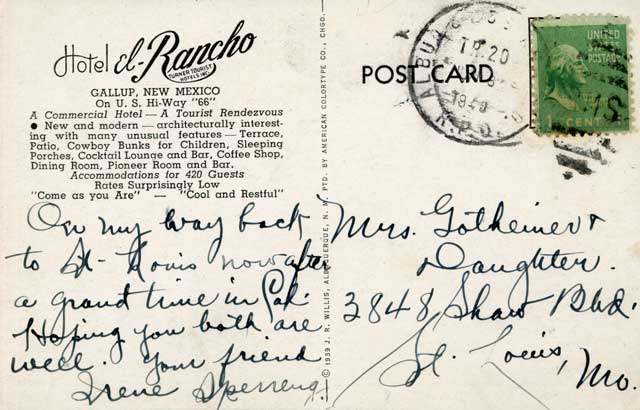 Hotel El-Rancho
TURNER TOURIST
HOTELS INC.
GALLUP, NEW MEXICO
On U. S. Hi-Way "66"
A Commercial Hotel — A Tourist Rendezvous
● New and modern — architecturally interest-
ing with many unusual features — Terrace,
Patio, Cowboy Bunks for Children, Sleeping
Porches, Cocktail Lounge and Bar, Coffee Shop,
Dining Room, Pioneer Room and Bar.
Accommodations for 420 Guests
Rates Surprisingly Low
"Come as you Are" — "Cool and Restful"
On my way back
to St. Louis now after
a grand time in Cal.
Hoping you both are
well. Your friend
Irene Sperreng
© 1939 J. R. WILLIS, ALBUQUERQUE, N. M. PTD. BY AMERICAN COLORTYPE CO., CHGO.
POST CARD
TR.20
R.P.O.
UNITED
STATES
POSTAGE
1 CENT
Mrs. Gotheimer &
Daughter.
3848 Shaw Blvd.
St. Louis,
Mo.